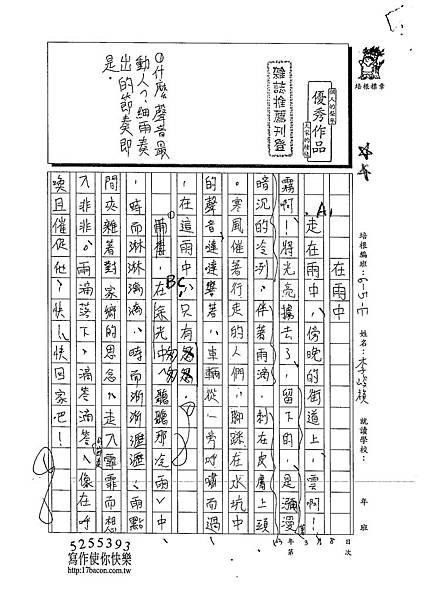 培根標章
個人的榮譽
優秀作品
大家的榜樣
雜誌推薦刊登
◎什麼聲音最
動人？細雨奏
出的節奏即
是。
培根編班：
姓名：李
就讀學校：
年 班
第 3 月 8 日 次
在雨中
走在雨中，傍晚的街道上，雲啊！
霧啊！將光亮搶去了，留下的，是瀰漫
暗沉的冷冽，伴著雨滴，刺在皮膚上頭
。寒風催著行走的人們，腳踩在水坑中
的聲音噠噠響著，車輛從一旁呼嘯而過
，在這雨中，只有匆忽。
在柔光中，聽聽那冷雨，中
，時而淋淋漓漓，時而淅淅瀝瀝，雨點
間夾雜著對家鄉的思念，走入霏霏而想
入非非。雨滴落下，滴答滴答，像在呼
喚且催促他，快！快回家吧！
5255393
寫作使你快樂
http://17bacon.com.tw/